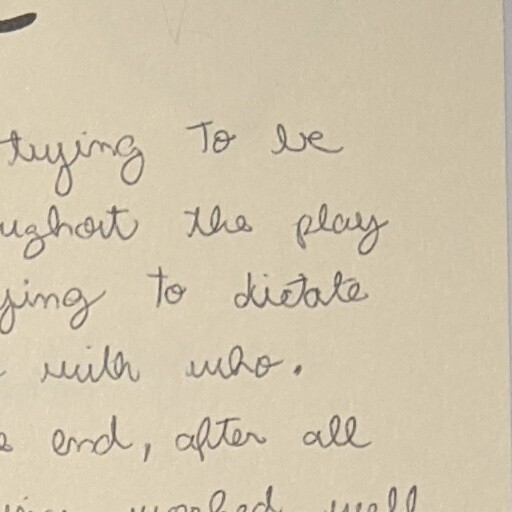 trying to be
ughout the play
ying to dictate
with who.
end, after all
worked well